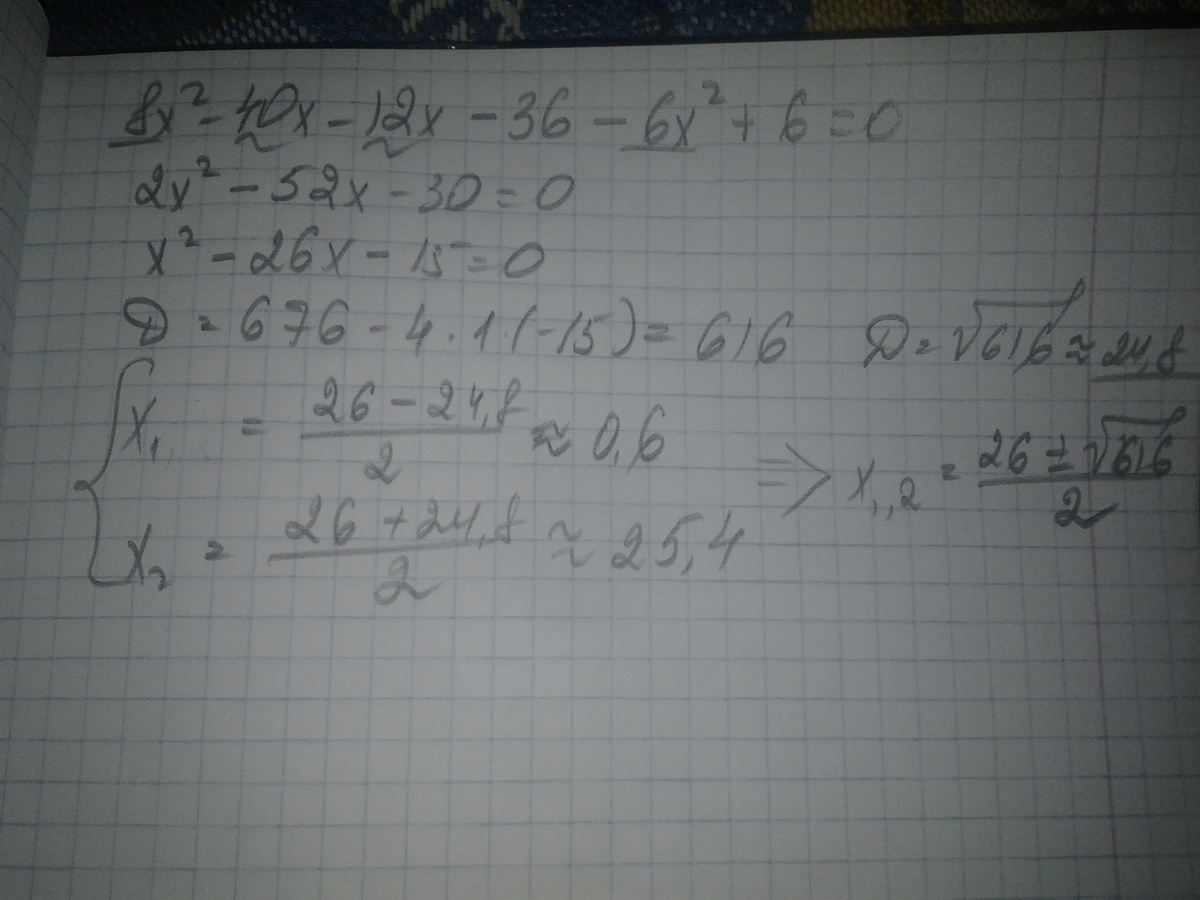 8x² - 40x - 12x - 36 - 6x² + 6 = 0
2x² - 52x - 30 = 0
x² - 26x - 15 = 0
D = 676 - 4 · 1 (-15) = 616 D = √616 ≈ 24,8
x₁ = (26 - 24,8)/2 ≈ 0,6
⇒ x₁,₂ = (26 ± √616)/2
x₂ = (26 + 24,8)/2 ≈ 25,4